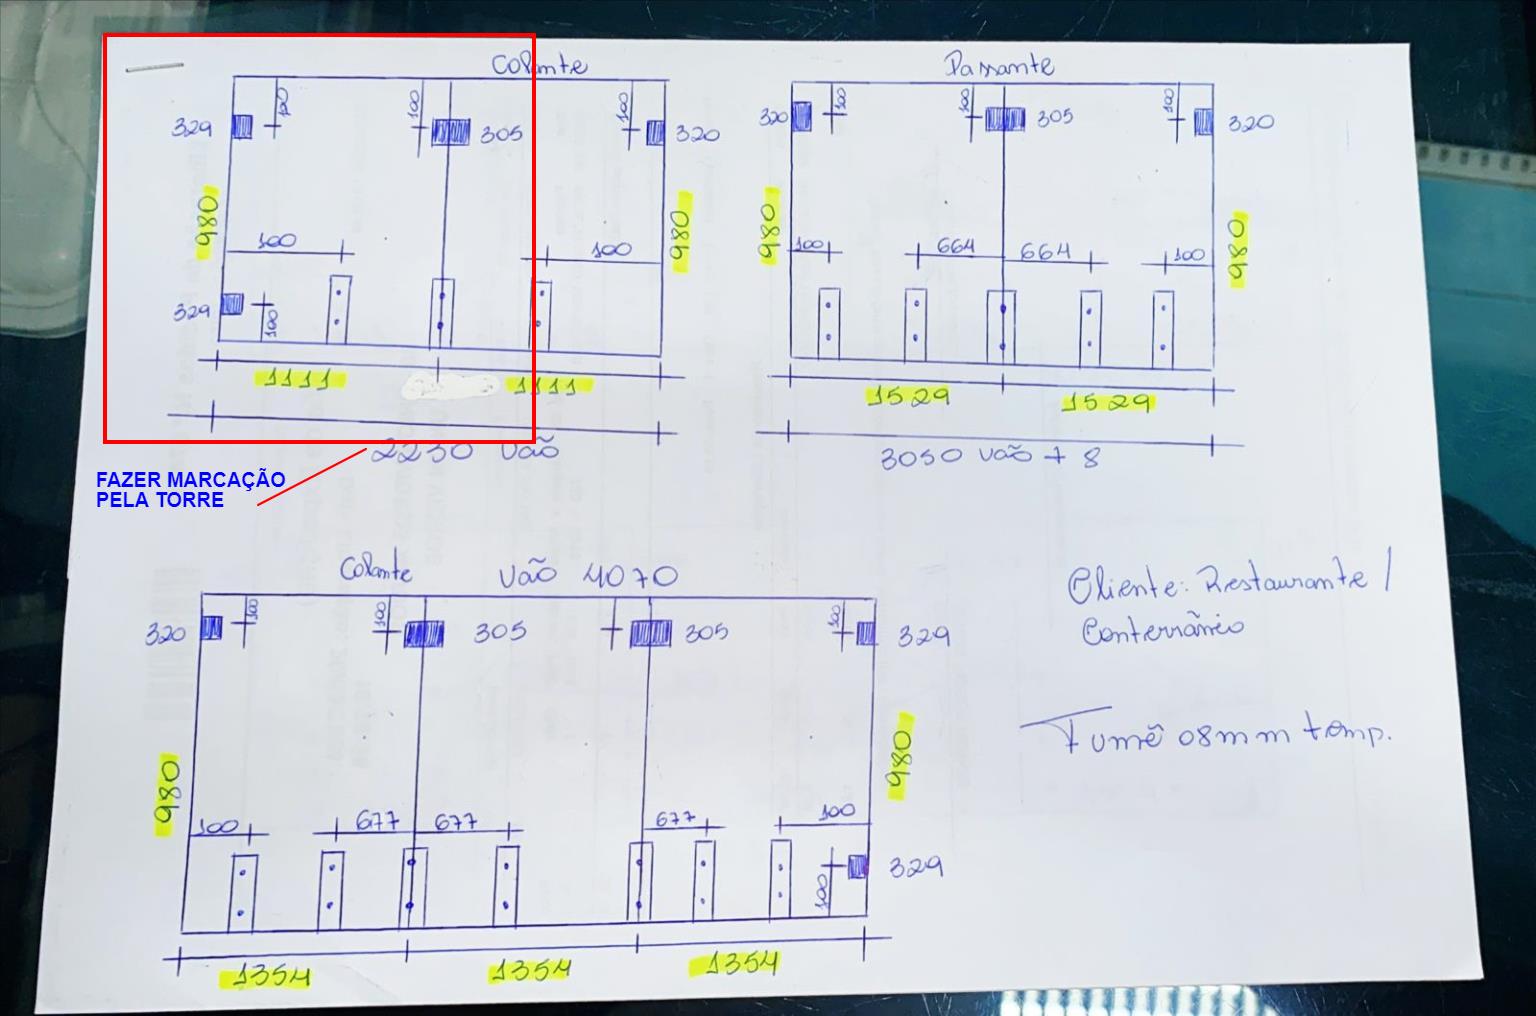 Colante
329
100
100
305
100
320
980
980
100
100
329
100
1111
1111
2230 vão
FAZER MARCAÇÃO
PELA TORRE
Passante
320
100
100
305
100
320
980
980
100
664
664
100
1529
1529
3050 vão + 8
Colante
vão 4070
320
100
100
305
305
100
329
980
980
100
677
677
677
100
329
100
1354
1354
1354
Cliente: Restaurante /
Conterrâneo
Fumê 08mm temp.